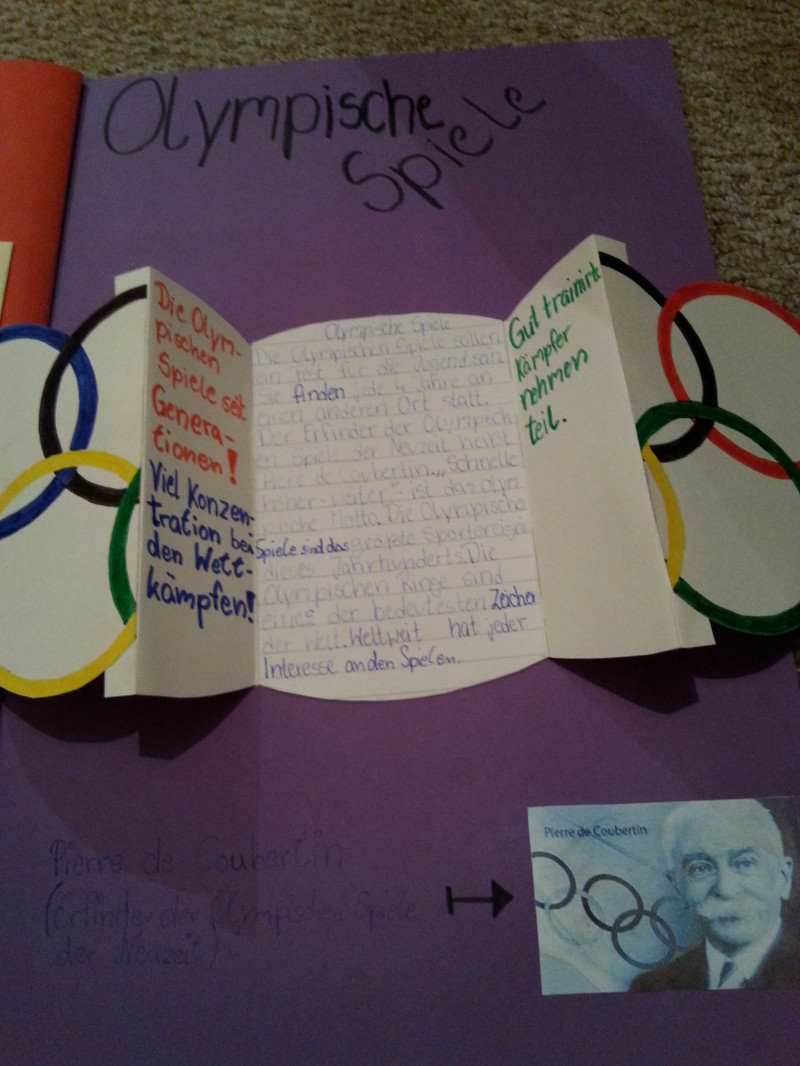 Olympische
Spiele
Die Olym-
pischen
Spiele seit
Genera-
tionen!
Viel Konzen-
tration bei
den Wett-
kämpfen!
Olympische Spiele
Die Olympischen Spiele sollen
ein fest für die Jugend sein
Sie finden jede 4 Jahre an
einen anderen Ort statt.
Der Erfinder der Olympisch
en Spiele der Neuzeit heißt
Piere de Coubertin. "Schnelle
höher-weiter" ist das olym
pische Motto. Die Olympische
Spiele sind das größte Sportereigni
dieses Jahrhunderts. Die
Olympischen Ringe sind
eines der bedeutesten Zeichen
der Welt. Weltweit hat jeder
Interesse an den Spielen.
Gut trainirte
Kämpfer
nehmen
teil.
Pierre de Coubertin
(Erfinder der Olympischen Spiele
der Neuzeit)
Pierre de Coubertin